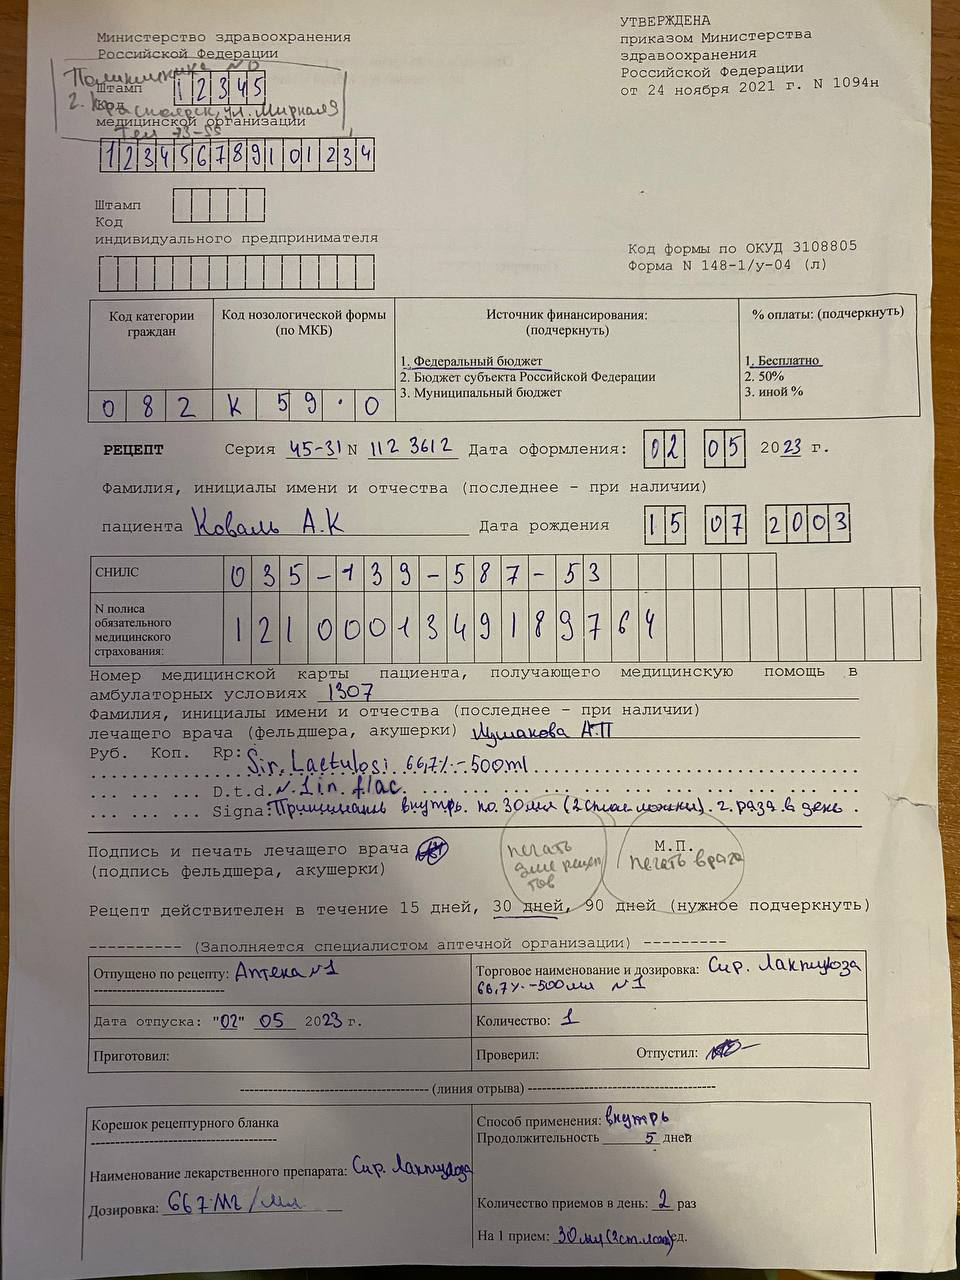 УТВЕРЖДЕНА
приказом Министерства
здравоохранения
Российской Федерации
от 24 ноября 2021 г. N 1094н
Министерство здравоохранения
Российской Федерации
Поликлиника №
Штамп 1 2 3 4 5
Код
г. Красноярск, ул. Мирная 9
медицинской организации
Тел 73-55
1 2 3 4 5 6 7 8 9 1 0 1 2 3 4
Штамп
Код
индивидуального предпринимателя
Код формы по ОКУД 3108805
Форма N 148-1/у-04 (л)
Код категории граждан
Код нозологической формы (по МКБ)
Источник финансирования: (подчеркнуть)
1. Федеральный бюджет
2. Бюджет субъекта Российской Федерации
3. Муниципальный бюджет
% оплаты: (подчеркнуть)
1. Бесплатно
2. 50%
3. иной %
0 8 2 К 5 9 . 0
РЕЦЕПТ Серия 45-31 N 112 3612 Дата оформления: 02 05 2023 г.
Фамилия, инициалы имени и отчества (последнее – при наличии)
пациента Коваль А.К Дата рождения 15 07 2003
СНИЛС 035-139-587-53
N полиса обязательного медицинского страхования: 1210001349189764
Номер медицинской карты пациента, получающего медицинскую помощь в
амбулаторных условиях 1307
Фамилия, инициалы имени и отчества (последнее – при наличии)
лечащего врача (фельдшера, акушерки) Шумакова А.П
Руб. Коп. Rp: Sir. Lactulosi 66,7%-500ml
D.t.d. N. 1 in flac.
Signa: Принимать внутрь по 30мл (2 стол ложки) 2 раза в день
Подпись и печать лечащего врача
(подпись фельдшера, акушерки)
печать для рецептов
М.П.
печать врача
Рецепт действителен в течение 15 дней, 30 дней, 90 дней (нужное подчеркнуть)
---------- (Заполняется специалистом аптечной организации) ---------
Отпущено по рецепту: Аптека №1
Торговое наименование и дозировка: Сир. Лактулоза
66,7%-500мл №1
Дата отпуска: "02" 05 2023 г.
Количество: 1
Приготовил:
Проверил: Отпустил:
(линия отрыва)
Корешок рецептурного бланка
Способ применения: внутрь
Продолжительность 5 дней
Наименование лекарственного препарата: Сир. Лактулоза
Дозировка: 667 мг/мл
Количество приемов в день: 2 раз
На 1 прием: 30мл (2 ст. лож) ед.